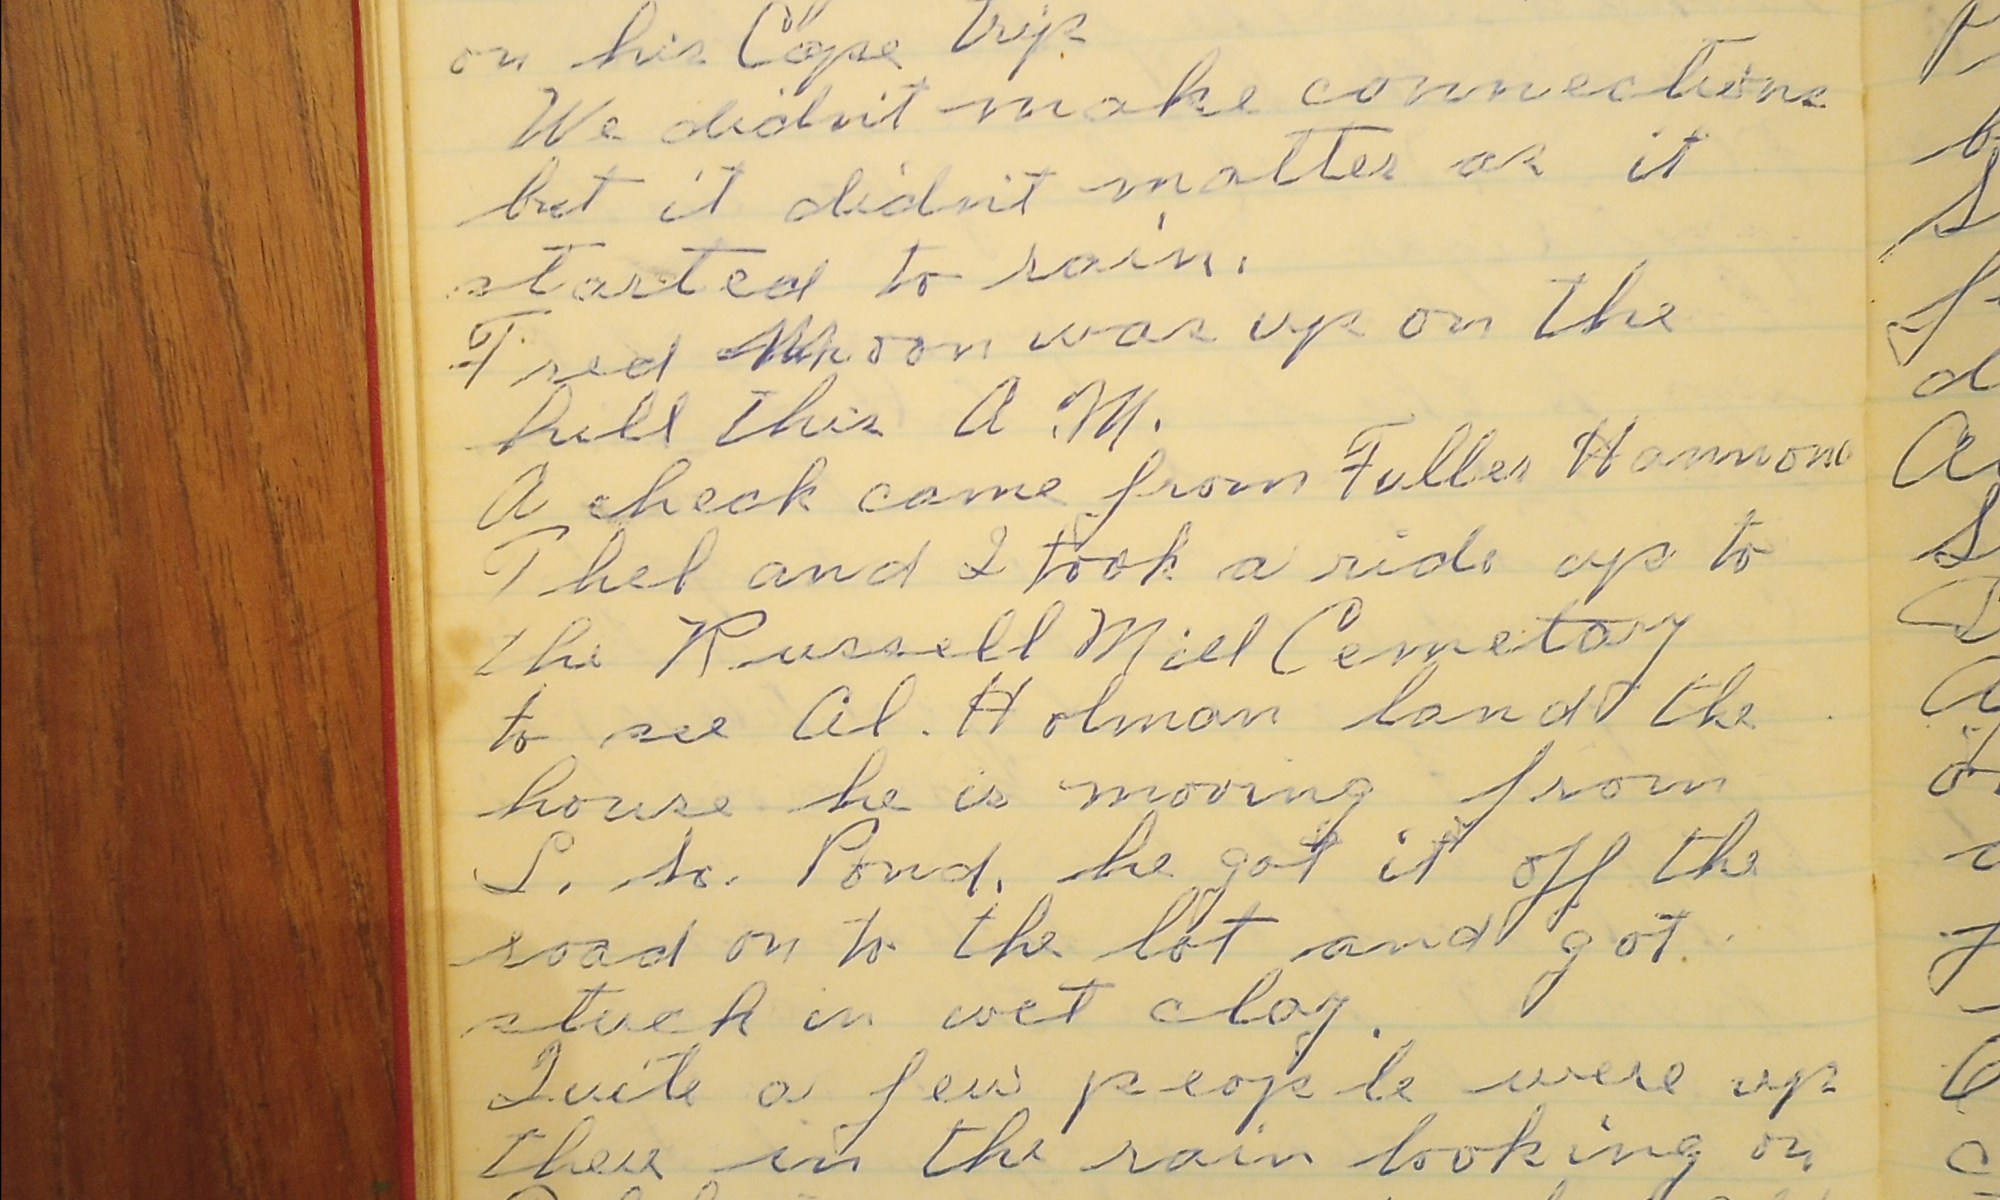 on his Cape trip
We didn't make connections
but it didn't matter as it
started to rain.
Fred Moon was up on the
hill this A.M.
A check came from Fuller Hammond
Thel and I took a ride up to
the Russell Mill Cemetary
to see Al. Holman land the
house he is moving from
L. So. Pond. he got it off the
road on to the lot and got
stuck in wet clay.
Quite a few people were up
there in the rain looking on